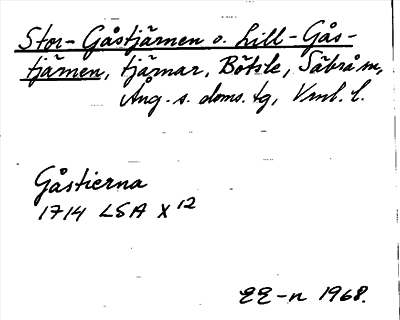 Stor-Gåstjärnen o. Lill-Gås-
tjärnen, tjärnar, Bötsle, Säbrå sn,
Ång. s. doms. tg, Vrnl. l.
Gåstierna
1714 LSA X 12
EE-n 1968.